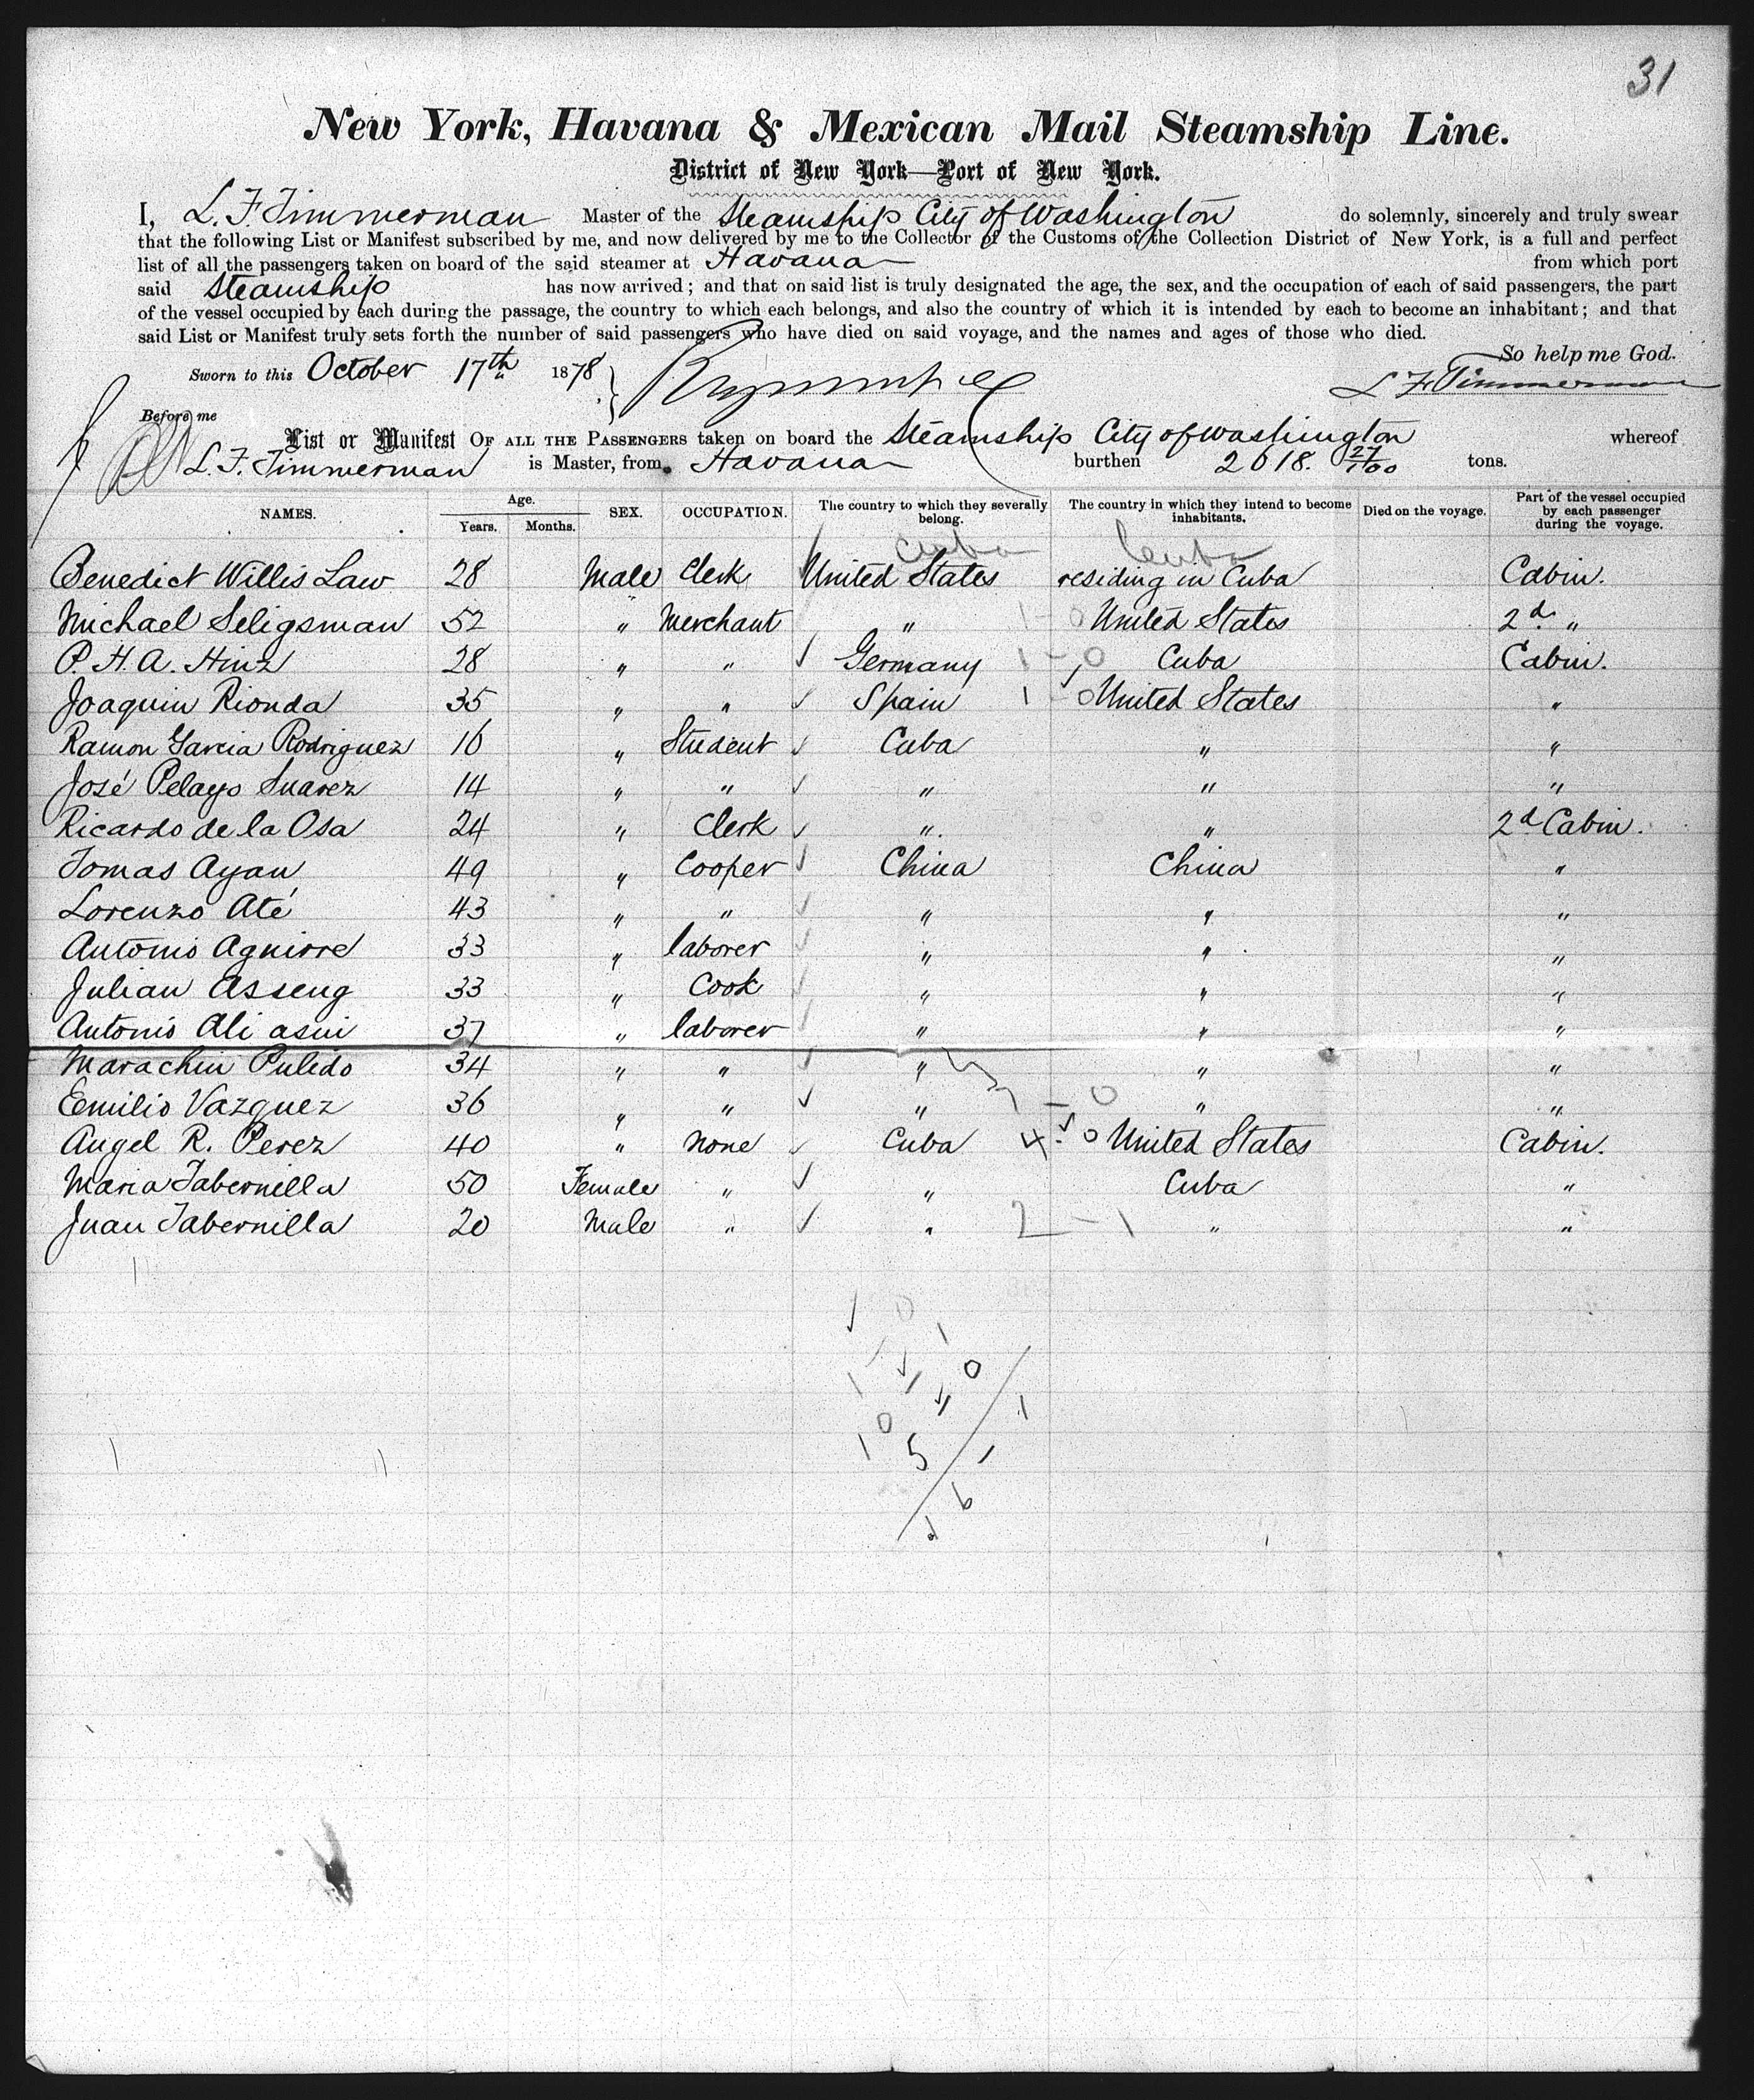 31
New York, Havana & Mexican Mail Steamship Line.
District of New York—Port of New York.
I, L. F. Timmerman Master of the Steamship City of Washington do solemnly, sincerely and truly swear
that the following List or Manifest subscribed by me, and now delivered by me to the Collector of the Customs of the Collection District of New York, is a full and perfect
list of all the passengers taken on board of the said steamer at Havana from which port
said Steamship has now arrived; and that on said list is truly designated the age, the sex, and the occupation of each of said passengers, the part
of the vessel occupied by each during the passage, the country to which each belongs, and also the country of which it is intended by each to become an inhabitant; and that
said List or Manifest truly sets forth the number of said passengers who have died on said voyage, and the names and ages of those who died.
So help me God.
Sworn to this October 17th 1878 L F Timmerman
Before me
List or Manifest OF ALL THE PASSENGERS taken on board the Steamship City of Washington whereof
L. F. Timmerman is Master, from Havana burthen 2618. 27/100 tons.
NAMES. Age. Years. Months. SEX. OCCUPATION. The country to which they severally belong. The country in which they intend to become inhabitants. Died on the voyage. Part of the vessel occupied by each passenger during the voyage.
Cuba Cuba
Benedict Willis Law 28 Male Clerk United States residing in Cuba Cabin.
Michael Seligsman 52 " Merchant " 1-0 United States 2d "
P. H. A. Hinz 28 " " Germany 1-0 Cuba Cabin.
Joaquin Rionda 35 " " Spain 1-0 United States "
Ramon Garcia Rodriguez 16 " Student Cuba " "
José Pelayo Suarez 14 " " " " "
Ricardo de la Osa 24 " Clerk " " 2d Cabin.
Tomas Ayan 49 " Cooper China China "
Lorenzo Até 43 " " " " "
Antonio Aguirre 33 " laborer " " "
Julian Asseng 33 " Cook " " "
Antonio Ali asui 37 " laborer " " "
Marachin Pulido 34 " " " " "
Emilio Vazquez 36 " " " 7-0 " "
Angel R. Perez 40 " None Cuba 4-0 United States Cabin.
Maria Tabernilla 50 Female " " Cuba "
Juan Tabernilla 20 Male " " 2-1 " "